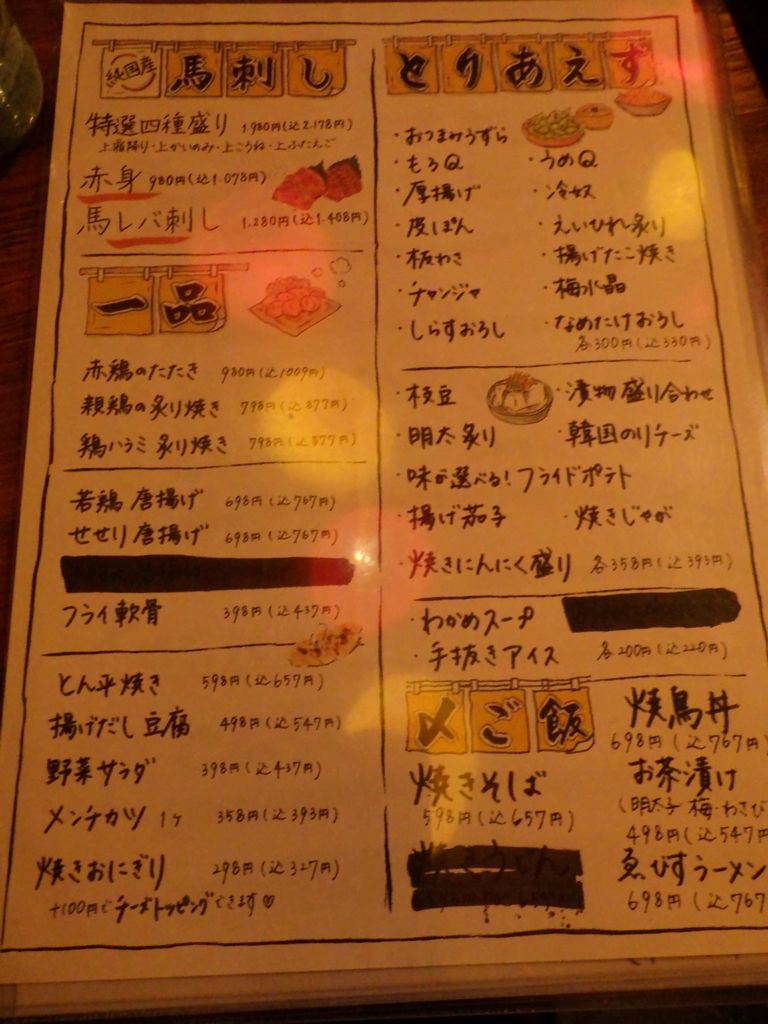 純国産 馬刺し
特選四種盛り 1.980円(込2.178円)
上霜降り・上かいのみ・上こうね・上ふたえご
赤身 980円(込1.078円)
馬レバ刺し 1.280円(込1.408円)
一品
赤鶏のたたき 980円(込1009円)
親鶏の炙り焼き 798円(込877円)
鶏ハラミ炙り焼き 798円(込877円)
若鶏 唐揚げ 698円(込767円)
せせり唐揚げ 698円(込767円)
フライ軟骨 398円(込437円)
とん平焼き 598円(込657円)
揚げだし豆腐 498円(込547円)
野菜サラダ 398円(込437円)
メンチカツ 1ヶ 358円(込393円)
焼きおにぎり 298円(込327円)
+100円でチーズトッピングできます♡
とりあえず
・おつまみうずら
・もろQ ・うめQ
・厚揚げ ・冷奴
・皮ぽん ・えいひれ炙り
・板わさ ・揚げたこ焼き
・チャンジャ ・梅水晶
・しらすおろし ・なめたけおろし
各300円(込330円)
・枝豆 ・漬物盛り合わせ
・明太炙り ・韓国のりチーズ
・味が選べる!フライドポテト
・揚げ茄子 ・焼きじゃが
・焼きにんにく盛り 各358円(込393円)
・わかめスープ
・手抜きアイス 各200円(込220円)
〆ご飯
焼きそば
598円(込657円)
焼きうどん
焼鳥丼
698円(込767円)
お茶漬け
(明太子・梅・わさび
498円(込547円
ゑびすラーメン
698円(込767